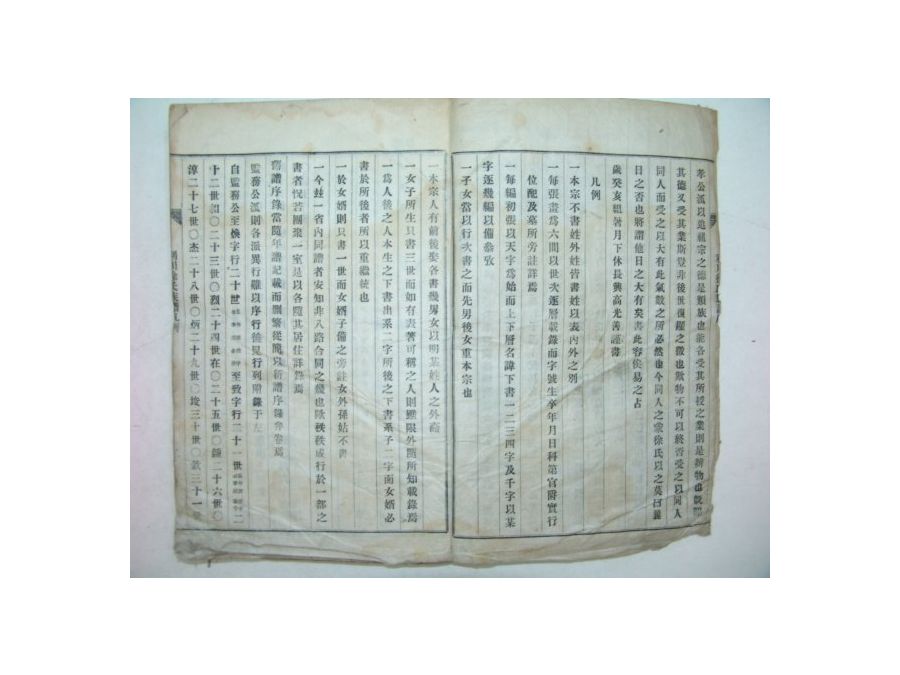 孝公派以追祖宗之德是類族也能各受其所授之業則是辨物也
其德又受其業斯豈非後世復躍之徵也歟物不可以終否受之以同人
同人而受之以大有此氣數之所必然也今同人之徐氏以之莫曰
日之否也將謂他日之大有矣書此容俟易之占
歲癸亥暑月下休長興高光善謹書
凡例
一本宗不書姓外姓皆書姓以表內外之別
一每張畫爲六間以世次逐層載錄而字號生卒年月日科第官爵實行
位配及墓所旁註詳焉
一每編初張以天字爲始而上下層名諱下書一二三四字及千字以某
字逐幾編以備叅攷
一子女當以行次書之而先男後女重本宗也
一本宗人有前後娶各書幾男女以明某姓人之外裔
一女子所生只書三世而如有表著可稱之人則雖限外隨所知載錄焉
一爲人後之人本生之下書出系二字所後之下書系子二字而女婿必
書於所後者所以重繼統也
一於女婿則只書一世而女婿子備之旁註女外孫姑不書
一今玆一省內同譜者安知非八路合同之機也歟秩秩成行於一部之
書者怳若團聚一室是以各隨其居住詳錄焉
舊譜序錄當隨年譜記載而刪繁從簡只以新譜序錄弁卷焉
監務公派則各派異行難以序行惟見行列附錄于左
自監務公至煥字行二十世 至致字行二十一世
十二世〇二十三世〇烈二十四世在〇二十五世〇鍾二十六世〇
淳二十七世〇杰二十八世〇炳二十九世〇埈三十世〇欽三十一